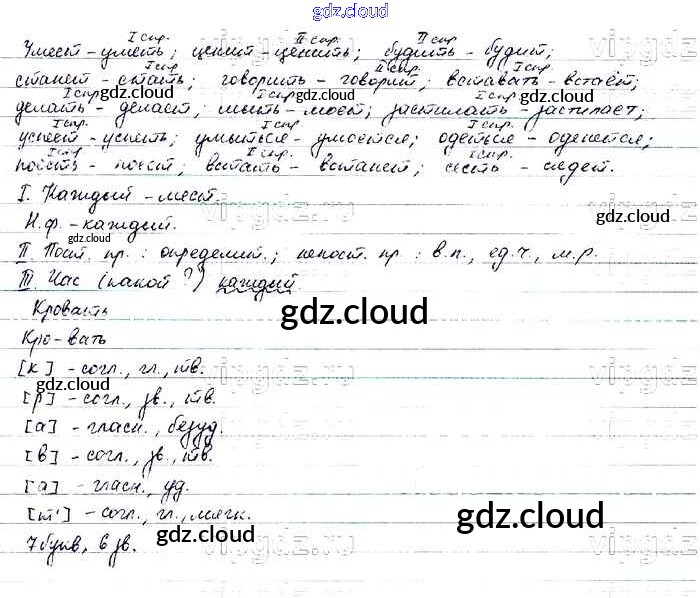 gdz.cloud
I спр. II спр. II спр.
Умеет - уметь; ценит - ценить; будить - будит;
I спр. II спр. I спр.
станет - стать; говорить - говорит; вставать - встаёт;
gdz.cloud gdz.cloud
I спр. I спр. I спр.
делать - делает; мыть - моет; застилать - застилает;
gdz.cloud gdz.cloud gdz.cloud
I спр. I спр. I спр.
успеет - успеть; умыться - умоется; одеться - оденется;
I спр. I спр. I спр.
поесть - поест; встать - встанет; сесть - сядет.
I. Каждый - мест.
vipgdz.ru vipgdz.ru
gdz.cloud
Н.ф. - каждый.
gdz.cloud
II Пост. пр.: определит.; непост. пр: в.п., ед.ч., м.р.
III Час (какой?) каждый.
Кровать gdz.cloud
Кро-вать
[к] - согл., гл., тв.
vipgdz.ru vipgdz.ru
gdz.cloud
[р] - согл., зв., тв. gdz.cloud
[а] - гласн., безуд.
[в] - согл., зв., тв.
[а] - гласн., уд.
[т'] - согл., гл., мягк. gdz.cloud
gdz.cloud
7 букв, 6 зв.
vipgdz.ru vipgdz.ru